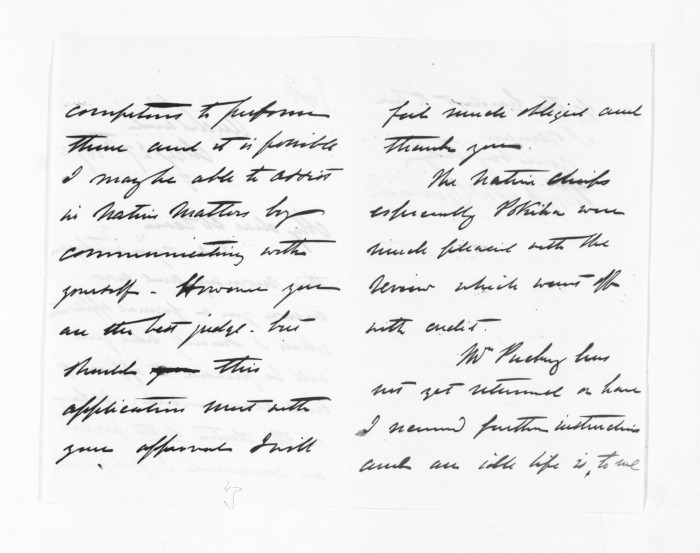 competent to perform
them and it is possible
I may be able to assist
in Native Matters by
communicating with
yourself - However you
are the best judge. but
should you this
application meet with
your approval I will
feel much obliged and
thank you.
The Native chiefs
especially Pokiha were
much pleased with the
review which went off
with credit.
Mrs
has
not yet returned or have
I received further instructions
and an idle life is, to me